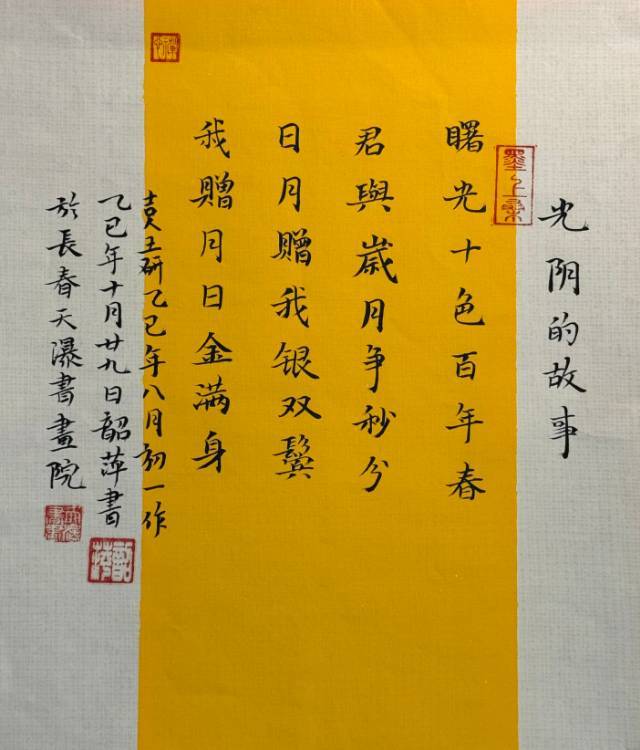 光阴的故事
曙光十色百年春
君與歲月争秒分
日月赠我银双鬓
我赠月日金满身
袁工研乙巳年八月初一作
乙巳年十月廿九日韶萍書
於長春天瀑書畫院